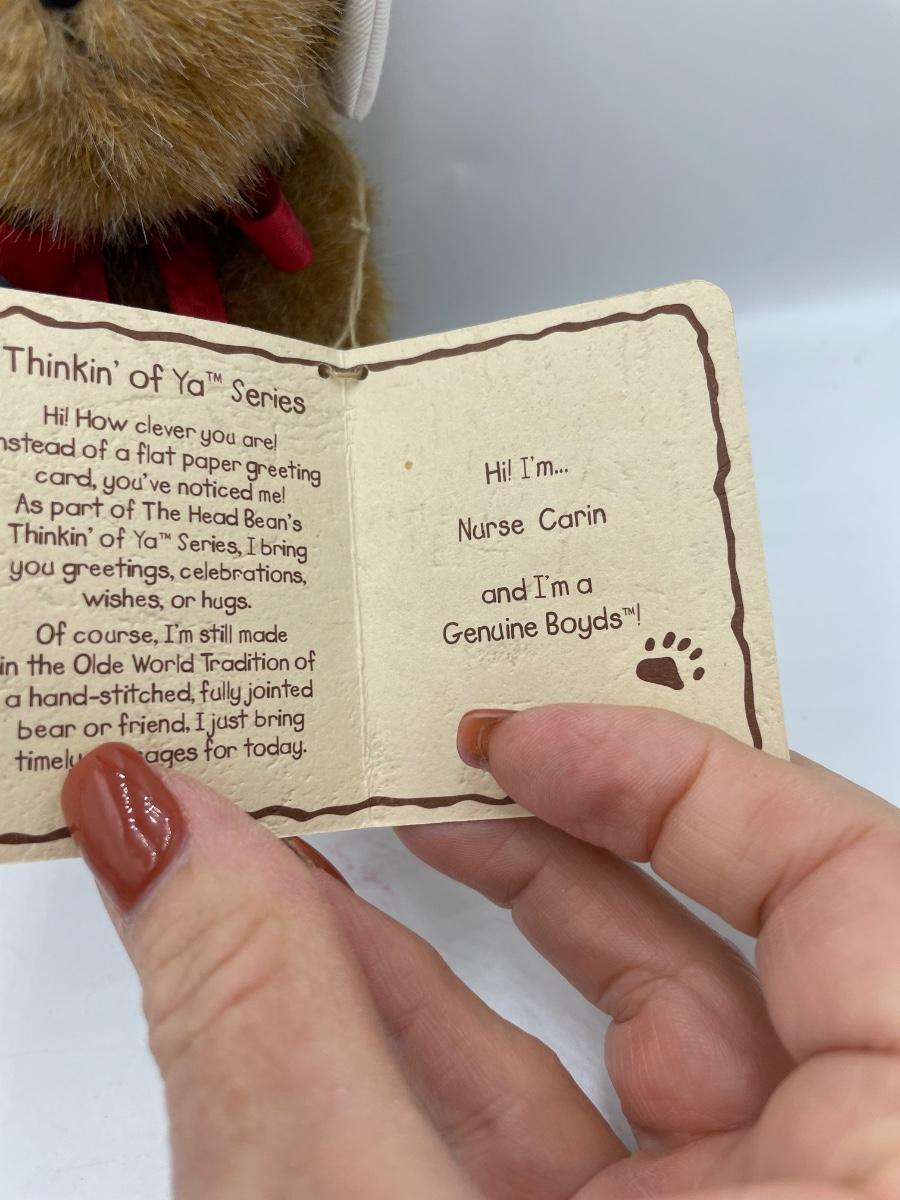 Thinkin' of Ya™ Series
Hi! How clever you are!
nstead of a flat paper greeting
card, you've noticed me!
As part of The Head Bean's
Thinkin' of Ya™ Series, I bring
you greetings, celebrations,
wishes, or hugs.
Of course, I'm still made
in the Olde World Tradition of
a hand-stitched, fully jointed
bear or friend, I just bring
timely sages for today.
Hi! I'm...
Nurse Carin
and I'm a
Genuine Boyds™!